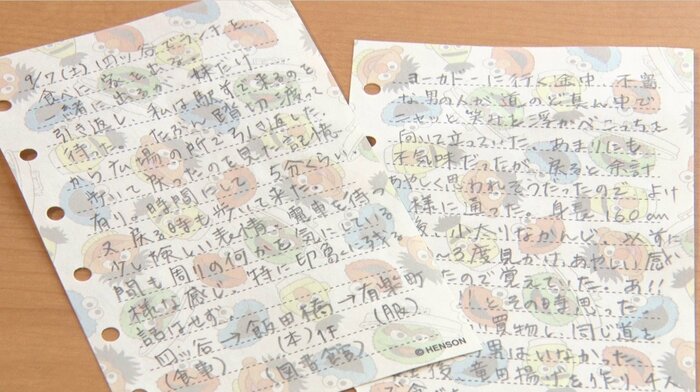 9/7(土)四ツ谷でランチを
食べに家を出る。
一緒に出るが 株だけ
引き返し、私は駅まで来るのを
待った。たぶん踏切 渡って
から広場の所で引き返した
歩いて戻ったのを見た記憶
有り。時間にして 5分くらい
又戻る時も歩いて来た。
少し険しい表情。電車を待つ
間も周りの何かを気にしている
様な感じ 特に印象に残る
話はせず。
四ツ谷 → 飯田橋 → 有楽町
(食事) (本)作 (服)
(図書館)
© HENSON
ヨーカドーに行く途中 不審
な男の人が道のど真ん中で
ニヤッと笑みを浮かべこっちを
向いて立っていた。あまりにも
不気味だったが、戻ると余計
あやしく思われそうだったので よけ
様に通った。身長160cm
小太りなかんじ、
～3度見かけ、あやしい
たので覚えていた…
とその時思った…
買物し、同じ道を
男はいなかった…
後 竜田揚げを作り